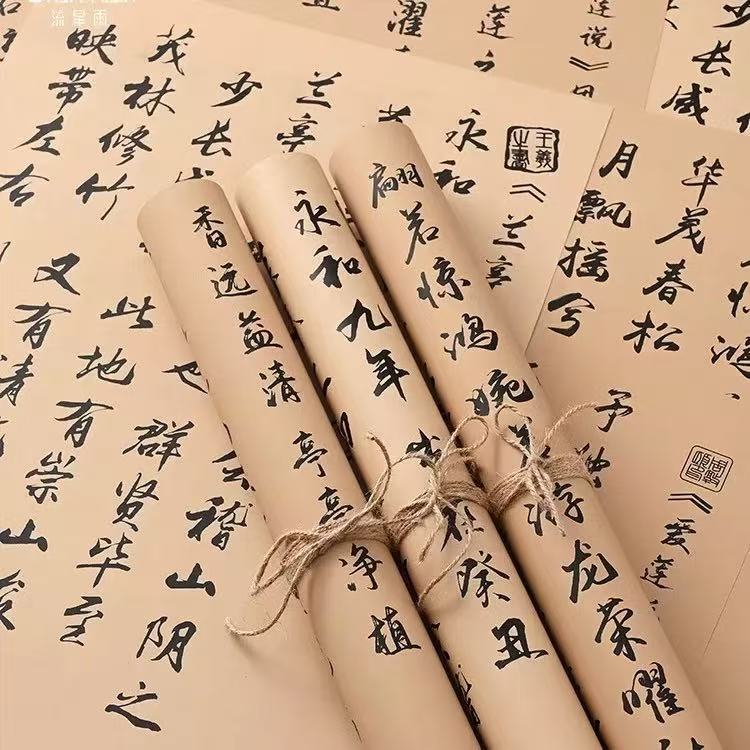 流星雨
少长咸
莲说》
莲之
濯
华茂春松
惊鸿
月飘摇兮
王羲之書
《兰亭
永和
兰亭
少长
茂林修竹
映带左右
翩若惊鸿婉若游龙荣曜
永和九年 岁在癸丑
香远益清 亭亭净植
予独
《爱莲
也
会稽山阴之
群贤毕至
此地有崇山峻
又有清